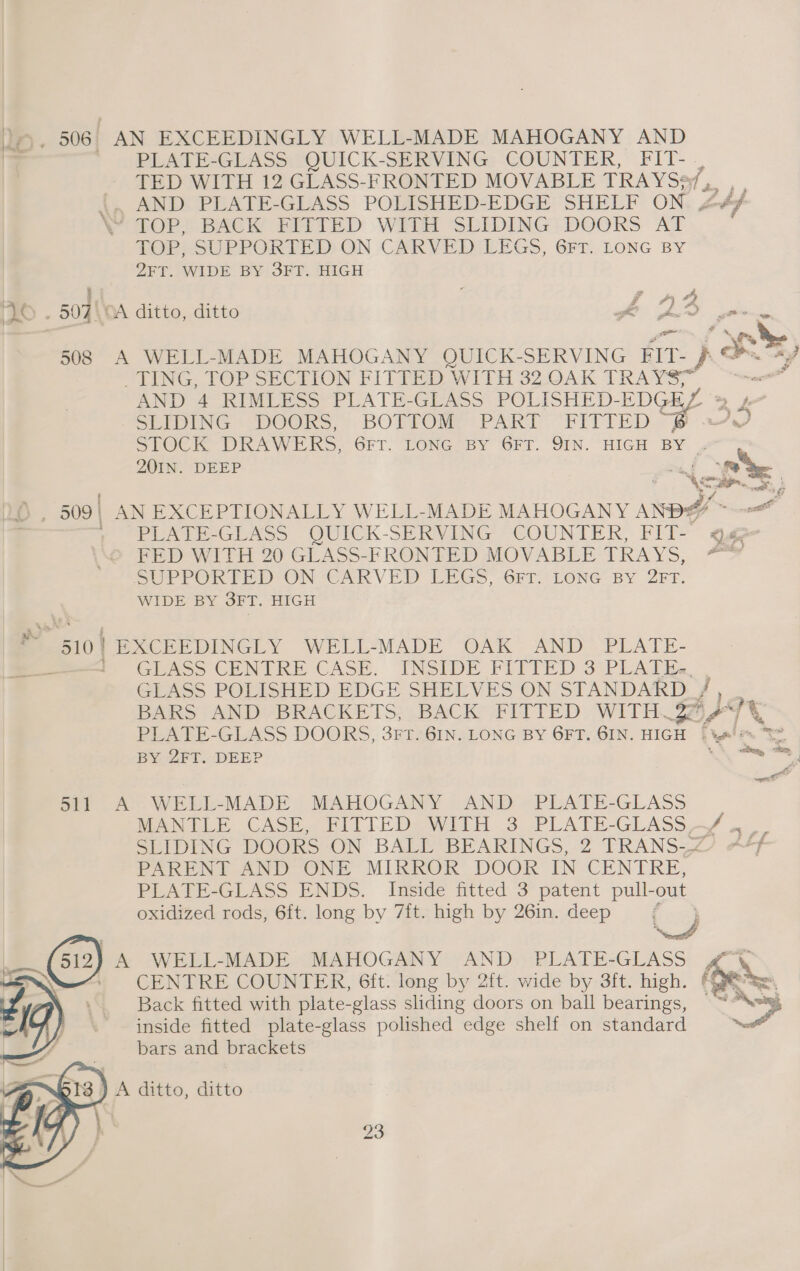 506 AN EXCEEDINGLY WELL-MADE MAHOGANY AND
PLATE-GLASS QUICK-SERVING COUNTER, FIT-
TED WITH 12 GLASS-FRONTED MOVABLE TRAYS
AND PLATE-GLASS POLISHED-EDGE SHELF ON
TOP, BACK FITTED WITH SLIDING DOORS AT
TOP, SUPPORTED ON CARVED LEGS, 6FT. LONG BY
2FT. WIDE BY 3FT. HIGH
507 A ditto, ditto £23
508 A WELL-MADE MAHOGANY QUICK-SERVING FIT-
TING, TOP SECTION FITTED WITH 32 OAK TRAYS,
AND 4 RIMLESS PLATE-GLASS POLISHED-EDGE
SLIDING DOORS, BOTTOM PART FITTED 6
STOCK DRAWERS, 6FT. LONG BY 6FT. 9IN. HIGH BY
20IN. DEEP
509 AN EXCEPTIONALLY WELL-MADE MAHOGANY AND
PLATE-GLASS QUICK-SERVING COUNTER, FIT-
FED WITH 20 GLASS-FRONTED MOVABLE TRAYS,
SUPPORTED ON CARVED LEGS, 6FT. LONG BY 2FT.
WIDE BY 3FT. HIGH
510 EXCEEDINGLY WELL-MADE OAK AND PLATE-
GLASS CENTRE CASE. INSIDE FITTED 3 PLATE-
GLASS POLISHED EDGE SHELVES ON STANDARD
BARS AND BRACKETS, BACK FITTED WITH 2
PLATE-GLASS DOORS, 3FT. 6IN. LONG BY 6FT. 6IN. HIGH
BY 2FT. DEEP
511 A WELL-MADE MAHOGANY AND PLATE-GLASS
MANTLE CASE, FITTED WITH 3 PLATE-GLASS
SLIDING DOORS ON BALL BEARINGS, 2 TRANS-
PARENT AND ONE MIRROR DOOR IN CENTRE,
PLATE-GLASS ENDS. Inside fitted 3 patent pull-out
oxidized rods, 6ft. long by 7ft. high by 26in. deep
512 A WELL-MADE MAHOGANY AND PLATE-GLASS
CENTRE COUNTER, 6ft. long by 2ft. wide by 3ft. high.
Back fitted with plate-glass sliding doors on ball bearings,
inside fitted plate-glass polished edge shelf on standard
bars and brackets
£19
513 A ditto, ditto
£19
23